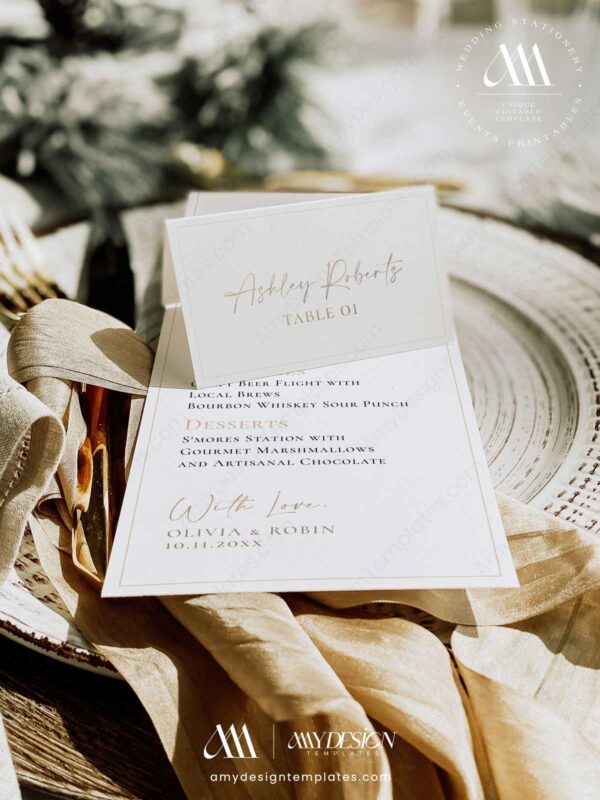 WEDDING STATIONERY
UNIQUE
EDITABLE
TEMPLATE
EVENTS PRINTABLES
Ashley Roberts
TABLE 01
Beer Flight with
Local Brews
Bourbon Whiskey Sour Punch
Desserts
S'mores Station with
Gourmet Marshmallows
and Artisanal Chocolate
With Love,
OLIVIA & ROBIN
10.11.20XX
AMYDESIGN
TEMPLATES
amydesigntemplates.com